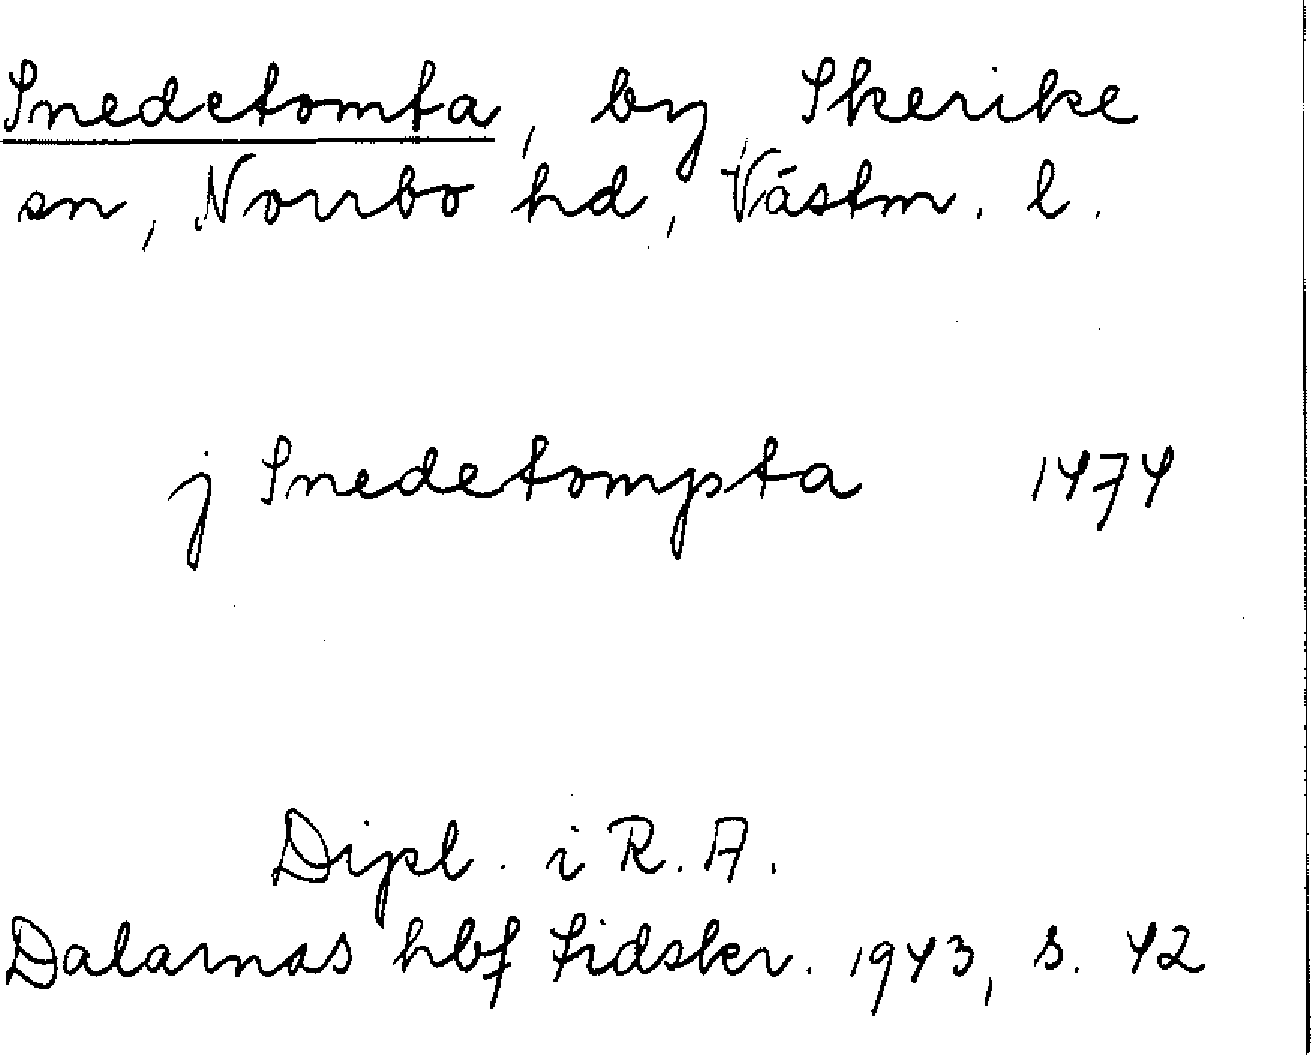 Snedetomta, by, Skerike
sn, Norrbo hd, Västm. l.
j Snedetompta 1474
Dipl. i R. A.
Dalarnas hbf tidskr. 1943, s. 42